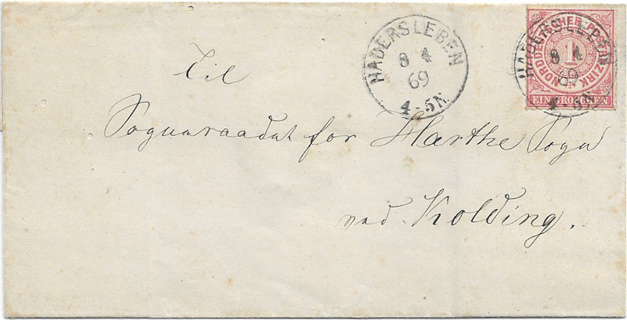 HADERSLEBEN
8 4
69
4-5N.
NORDDEUTSCHER POSTBEZIRK
1
EIN GROSCHEN
HADERSLEBEN
8 4
69
4-5N.
Til
Sogneraadet for Harthe Sogn
ved Kolding.